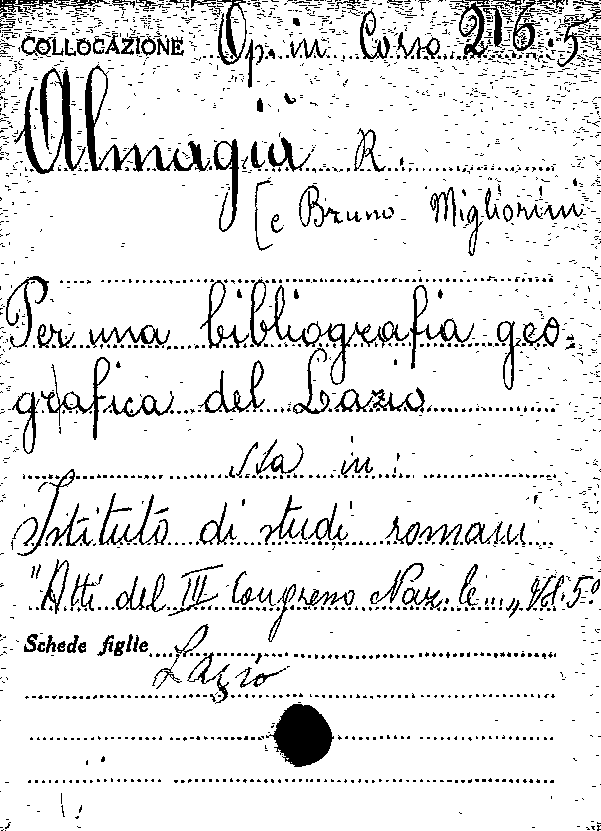 COLLOCAZIONE Op. in Corso 216.5
Almagià R.
[e Bruno Migliorini
Per una bibliografia geo-
grafica del Lazio
Sta in:
Istituto di studi romani
"Atti del III Congresso Naz.le...„ Vol. 5º
Schede figlie
Lazio